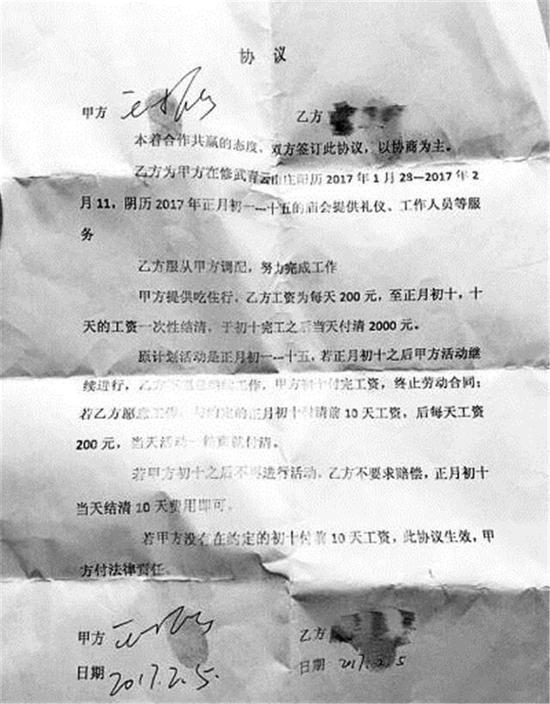 协 议
甲方 乙方
本着合作共赢的态度、双方签订此协议，以协商为主。
乙方为甲方在修武青云山庄阳历 2017 年 1 月 28—2017 年 2
月 11，阴历 2017 年正月初一---十五的庙会提供礼仪、工作人员等服
务
乙方服从甲方调配，努力完成工作
甲方提供吃住行，乙方工资为每天 200 元，至正月初十，十
天的工资一次性结清，于初十完工之后当天付清 2000 元。
原计划活动是正月初一---十五，若正月初十之后甲方活动继
续进行，乙方不愿意继续工作，甲方初十付完工资，终止劳动合同；
若乙方愿意工作，与约定的正月初十付清前 10 天工资，后每天工资
200 元，当天活动一结束就付清。
若甲方初十之后不再进行活动，乙方不要求赔偿，正月初十
当天结清 10 天费用即可。
若甲方没有在约定的初十付前 10 天工资，此协议生效，甲
方付法律责任.
甲方 乙方
日期 2017.2.5. 日期 2017.2.5